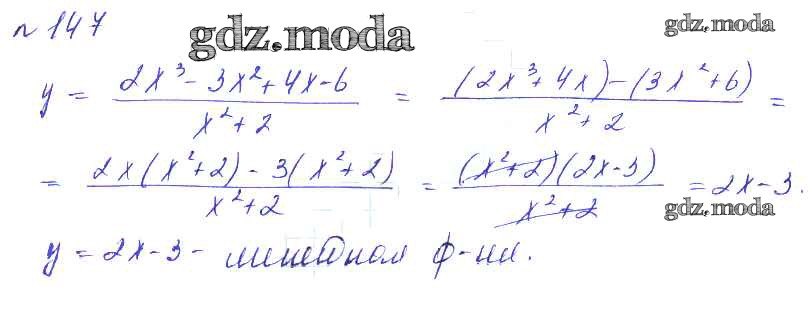 № 147
gdz.moda
gdz.moda
y = (2x³ - 3x² + 4x - 6)/(x² + 2) = ((2x³ + 4x) - (3x² + 6))/(x² + 2) =
= (2x(x² + 2) - 3(x² + 2))/(x² + 2) = ((x² + 2)(2x - 3))/(x² + 2) = 2x - 3.
gdz.moda
y = 2x - 3 - линейная ф-ия.